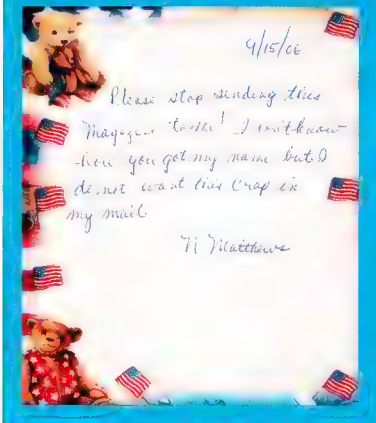 9/15/06
Please stop sending this
Magazine to me! I don't know
how you got my name but I
do not want this Crap in
my mail
N Matthews